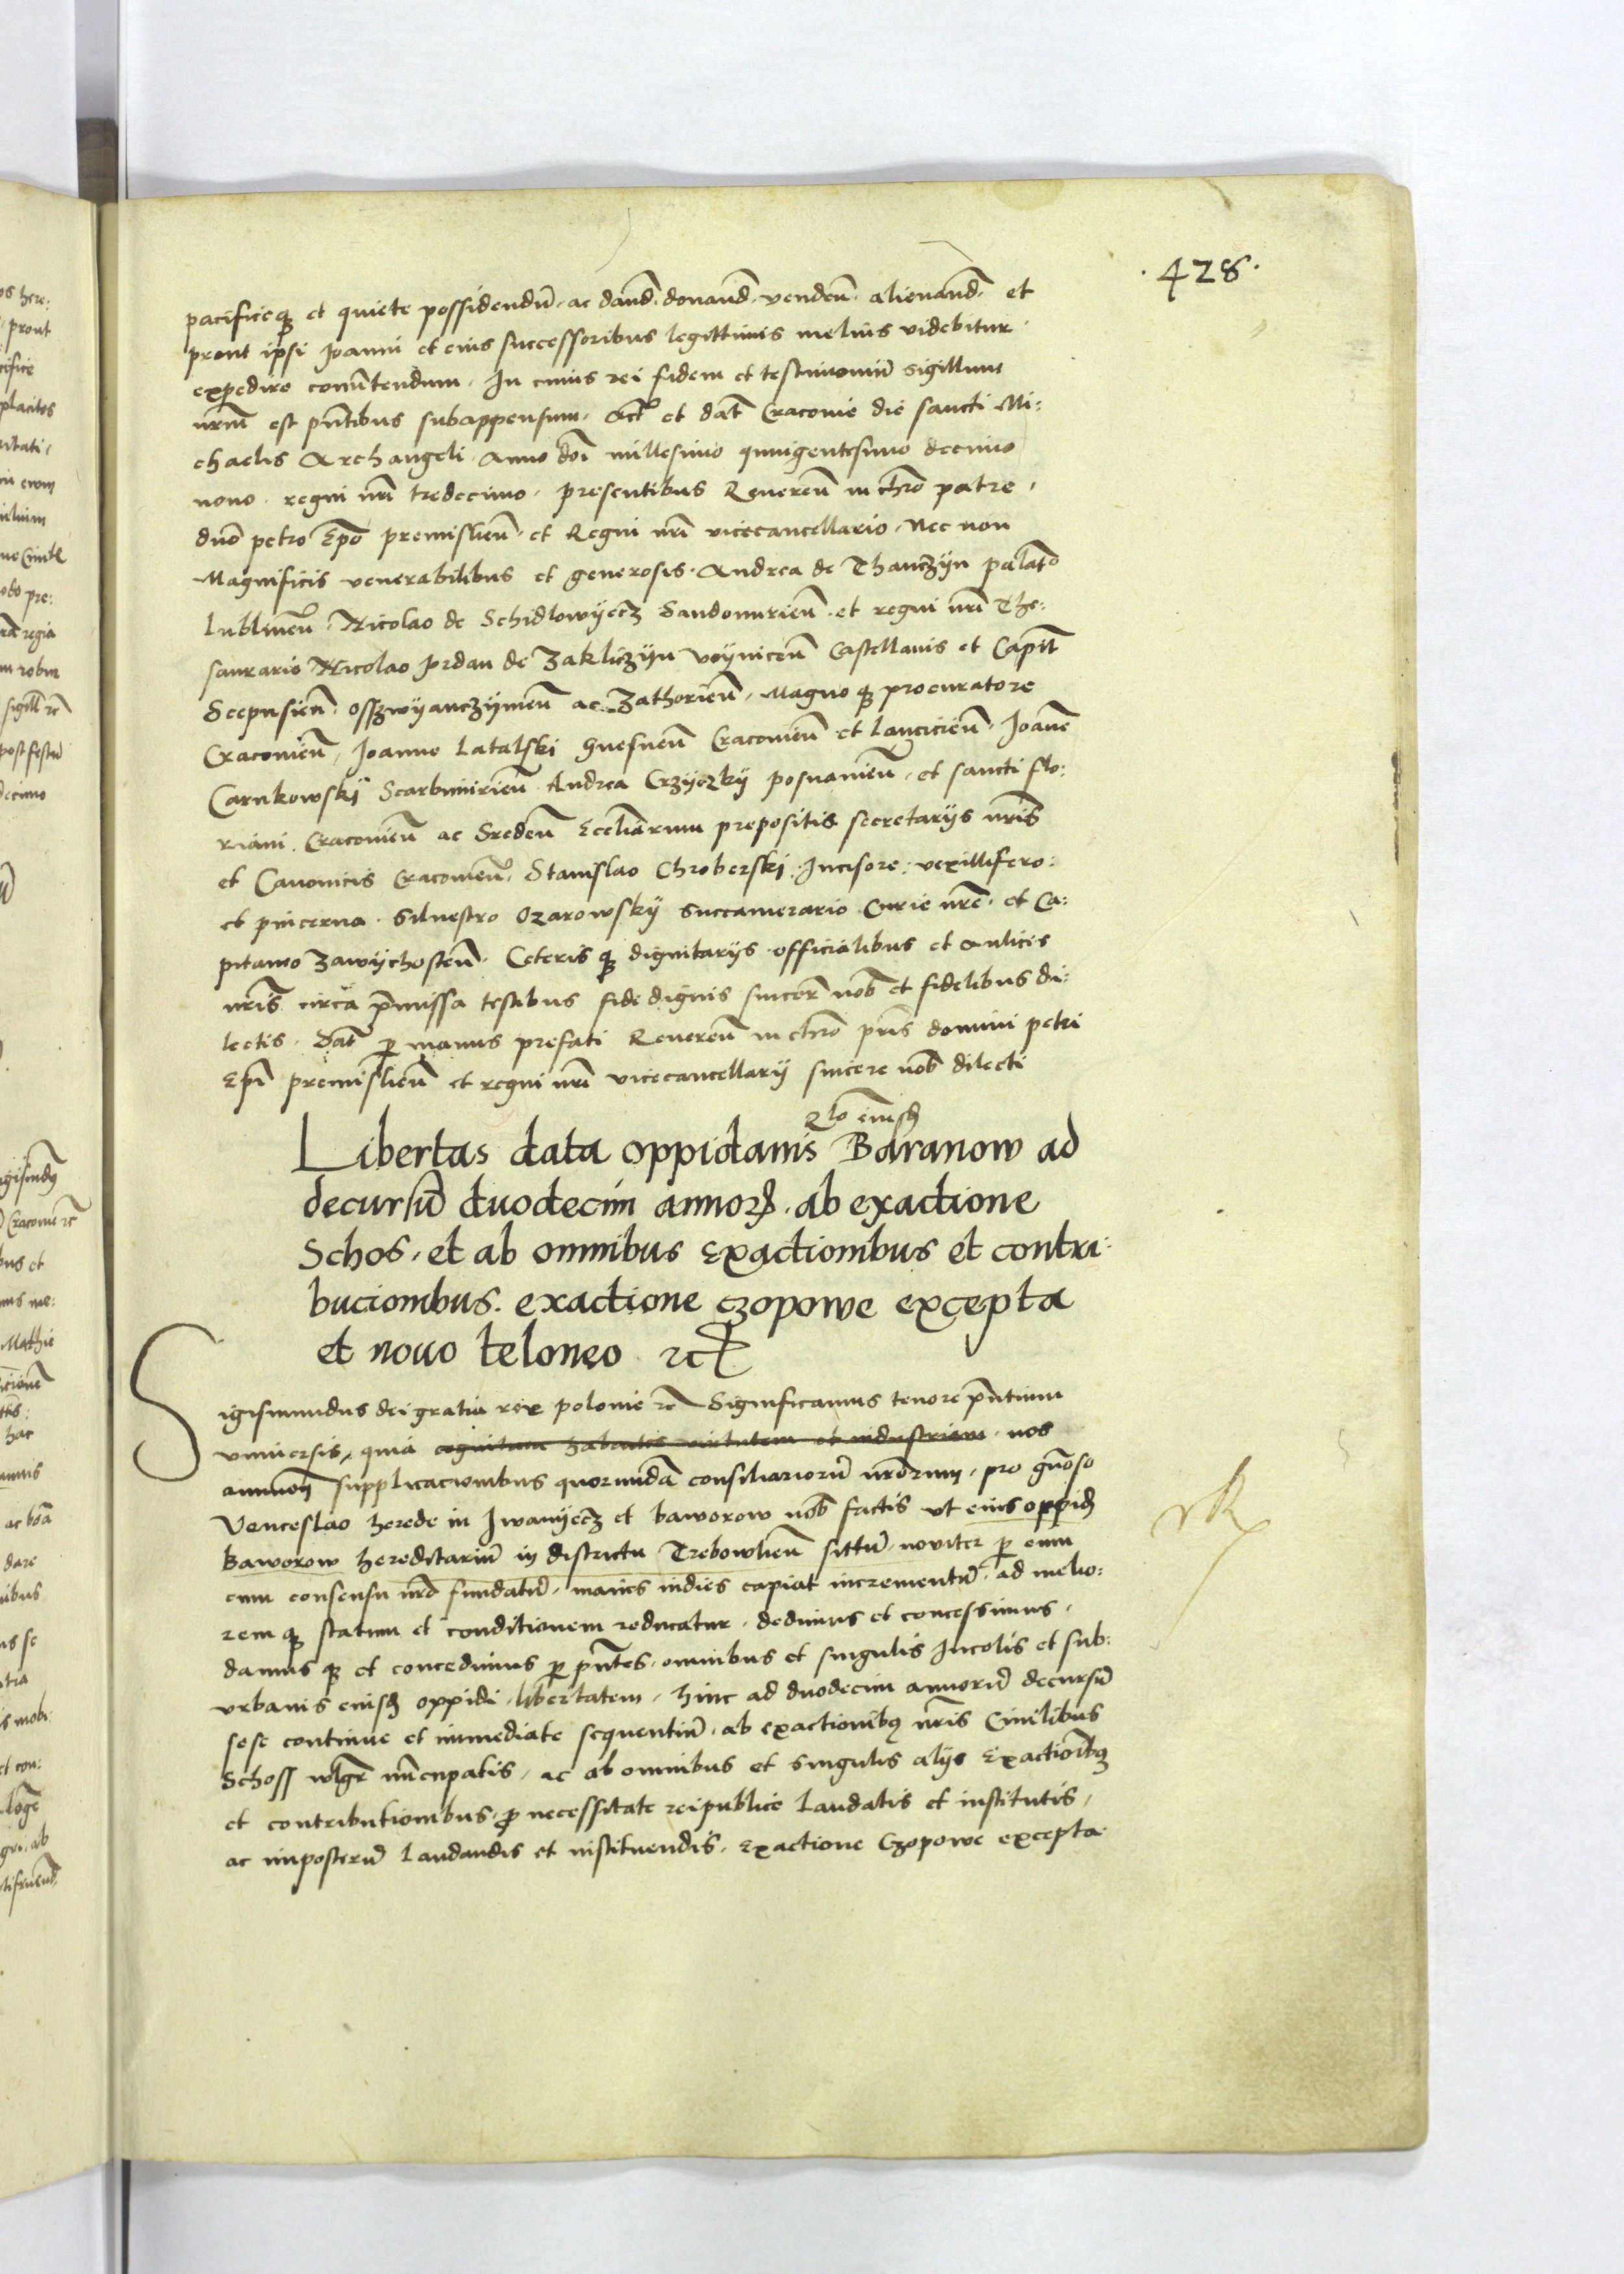 .428.
pacificeq3 et quiete possidendū. ac dand̄. donand̄. vendeñ. alienand̄. et
prout ipsi Joanni et eius successoribus legittimis melius videbitur
expedire convertendum. In cuius rei fidem et testimoniū sigillum
nr̄m est pn̄tibus subappensum. Act̄ et dat̄ Cracovie die sancti Mi:
chaelis Archangeli. Anno dōi millesimo quingentesimo decimo
nono. regni nr̄i tredecimo. presentibus Reveren̄ in chr̄o patre,
dn̄o petro Ep̄o premislien̄. et Regni nr̄i vicecancellario. Nec non
Magnificis venerabilibus et generosis. Andrea de Thanczÿn palat̄o
Lublinen̄. Nicolao de Schidlowÿecz Sandomirien̄. et regni nr̄i The:
saurario Nicolao Jordan de Zakliczÿn voÿnicen̄ Castellanis et Capit̄
Scepusien̄. osszwÿanczÿmen̄ ac Zathorien̄. Magnoq3 procuratore
Cracovien̄. Joanne Latalski Gnesnen̄ Cracovien̄ et Lancicien̄. Joan̄e
Carnkowskÿ Scarbimirien̄ Andrea Crzÿczkÿ posnanien̄. et sancti Flo:
riani. Cracovien̄ ac Sreden̄ Eccl̄iarum prepositis secretarÿs nr̄is
et Canonicis Cracovien̄. Stanislao Chroberski. Incisore. vexillifero:
et pincerna. Silvestro Ozarowskÿ Succamerario Curie nr̄e. et Ca:
pitaneo Zawÿchosten̄. Ceterisq3 dignitarÿs officialibus et aulicis
nr̄is circa p̄missa testibus fide dignis sincer̄ nob̄ et fidelibus di:
lectis. Dat̄ ꝑ manus prefati Reveren̄ in chr̄o pr̄is domini petri
Ep̄i premislien̄ et regni nr̄i vicecancellarÿ sincere nob̄ dilecti
Rlō eiusd̄
Libertas data oppidanis Baranow ad
decursū duodecim annorꝝ. ab exactione
Schos. et ab omnibus Exactionibus et contri:
bucionibus. exactione czopowe excepta
et novo teloneo rc̄
Sigismundus dei gratia rex polonie rc̄ Significamus tenore pn̄tium
universis. quia cognitam habentes virtutem et industriam. nos
annuen̄ supplicacionibus quorundā consiliariorū nr̄orum. pro gn̄oso
Venceslao herede in Iwanÿecz et baworow nob̄ factis ut eius oppid̄
Baworow hereditariū in districtu Trebowlien̄ sittū. noviter ꝑ eum
cum consensu nr̄o fundatū. maius indies capiat incrementū. ad melio:
remq3 statum et conditionem reducatur. dedimus et concessimus.
damusq3 et concedimus ꝑ pn̄tes. omnibus et singulis Incolis et sub:
urbanis eiusd̄ oppidi. libertatem. hinc ad duodecim annorū decursū
sese continue et immediate sequentiū. ab exactionibq nr̄is Civilibus
Schoss wlgr̄ nūcupatis. ac ab omnibus et singulis alÿs Exactionibq
et contributionibus. ꝓ necessitate reipublice laudatis et institutis.
ac imposterū laudandis et instituendis. Exactione Czopowe excepta